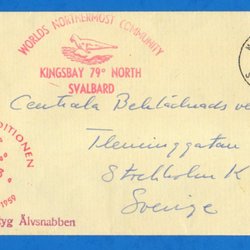 WORLDS NORTHERMOST COMMUNITY
KINGSBAY 79° NORTH
SVALBARD
Centrala
Fleminggatan
Stockholm K
Sverige
DITIONEN
1959
tyg Älvsnabben